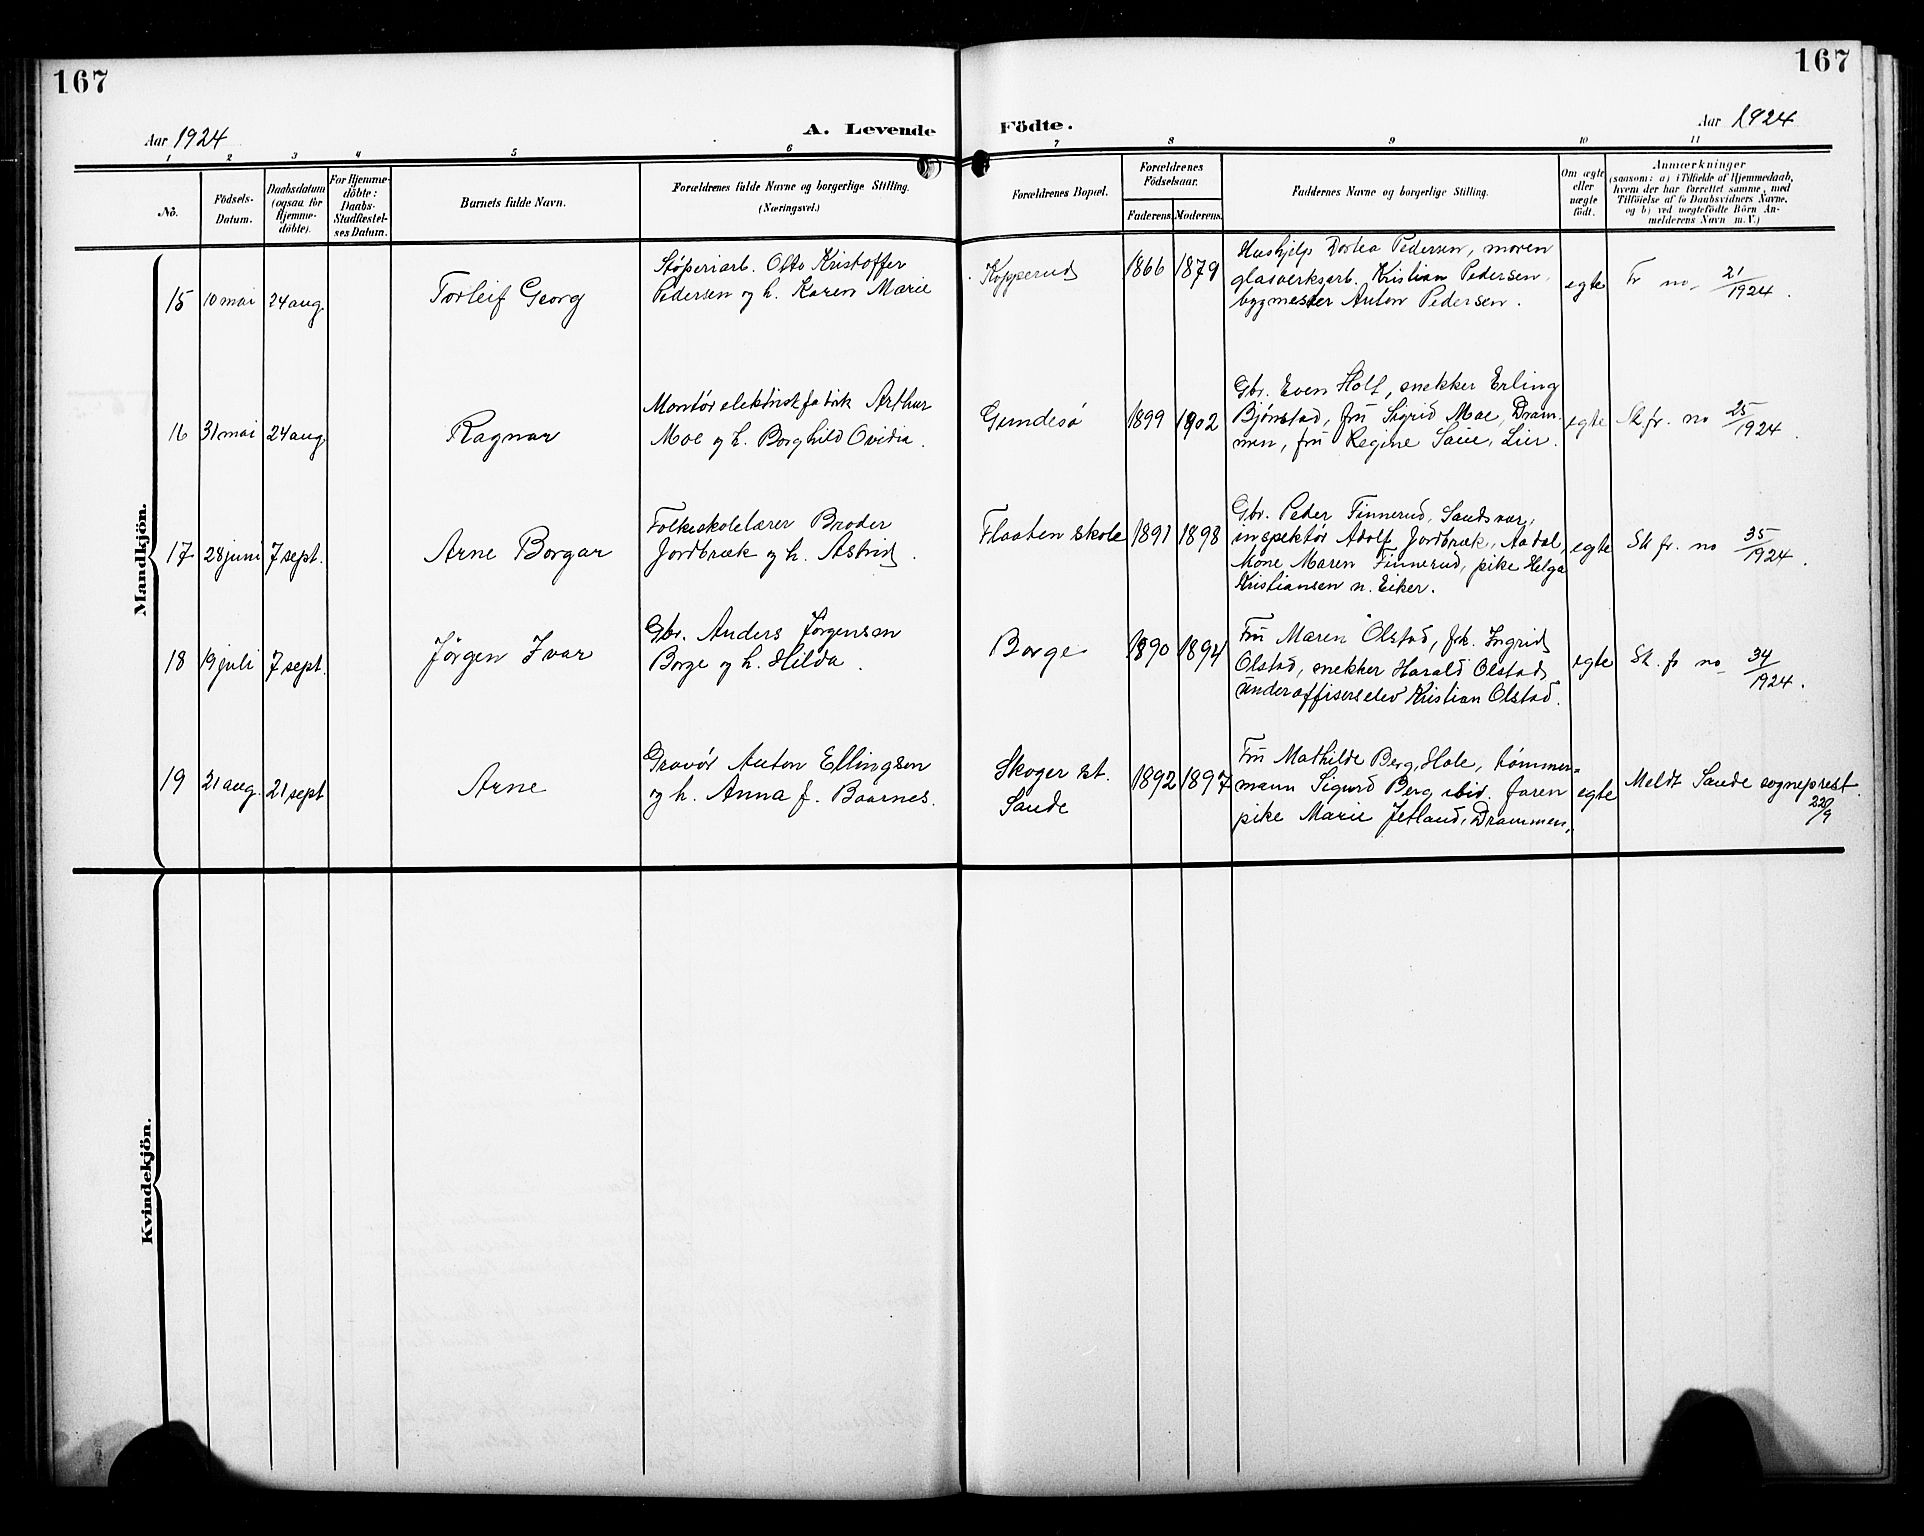 167
167
Aar 1924
A. Levende Födte.
Aar 1924
1 2 3 4 5 6 7 8 9 10 11
No.
Födsels-Datum.
Daabsdatum (ogsaa for Hjemme-döbte).
For Hjemme-döbte: Daabs-Stadfæstel-ses Datum.
Barnets fulde Navn.
Forældrenes fulde Navne og borgerlige Stilling.
(Næringsvei.)
Forældrenes Bopæl.
Forældrenes Födselsaar.
Faderens. Moderens.
Faddernes Navne og borgerlige Stilling.
Om ægte eller uægte födt.
Anmærkninger
(saasom: a) i Tilfælde af Hjemmedaab,
hvem der har forrettet samme, med
Tilföielse af to Daabsvidners Navne,
og b) ved uægtefödte Börn An-
melderens Navn m. V.)
Mandkjön.
15 10 mai 24 aug. Torleif Georg
Støperiarb. Otto Kristoffer
Pedersen og h. Karen Marie
Kopperud 1866 1879
Hushjelp Dortea Pedersen, moren
glasverksarb. Kristian Pedersen,
bygmester Anton Pedersen.
egte
Fr no 21/1924.
16 31 mai 24 aug. Ragnar
Montør elektrisk fabrik Arthur
Moe og h. Borghild Ovidia.
Gundesø 1899 1902
Gbr. Even Holt, snekker Erling
Bjørnstad, fru Sigrid Moe, Dram-
men, fru Regine Saue, Lier.
egte
Sk fr. no 25/1924.
17 28 juni 7 sept. Arne Borgar
Folkeskolelærer Broder
Jordbræk og h. Astrid.
Flaaten skole 1891 1898
Gbr. Peder Finnerud, Sandsvær,
inspektør Adolf Jordbræk, Aadal,
kone Maren Finnerud, pike Helga
Kristiansen n. Eiker.
egte
Sk fr. no 35/1924.
18 19 juli 7 sept. Jørgen Ivar
Gbr. Anders Jørgensen
Borge og h. Hilda.
Borge 1890 1894
Fru Maren Olstad, frk. Ingrid
Olstad, snekker Harald Olstad,
underoffiserselev Kristian Olstad.
egte
Sk. fr no 34/1924.
19 21 aug. 21 sept Arne
Gravør Anton Ellingsen
og h. Anna f. Baarnes.
Skoger st.
Sande
1892 1897
Fru Mathilde Berg, Hole, tømmer-
mann Sigurd Berg ibid. faren
pike Marie Jetland, Drammen,
egte
Meldt Sande sogneprest
22/9
Kvindekjön.